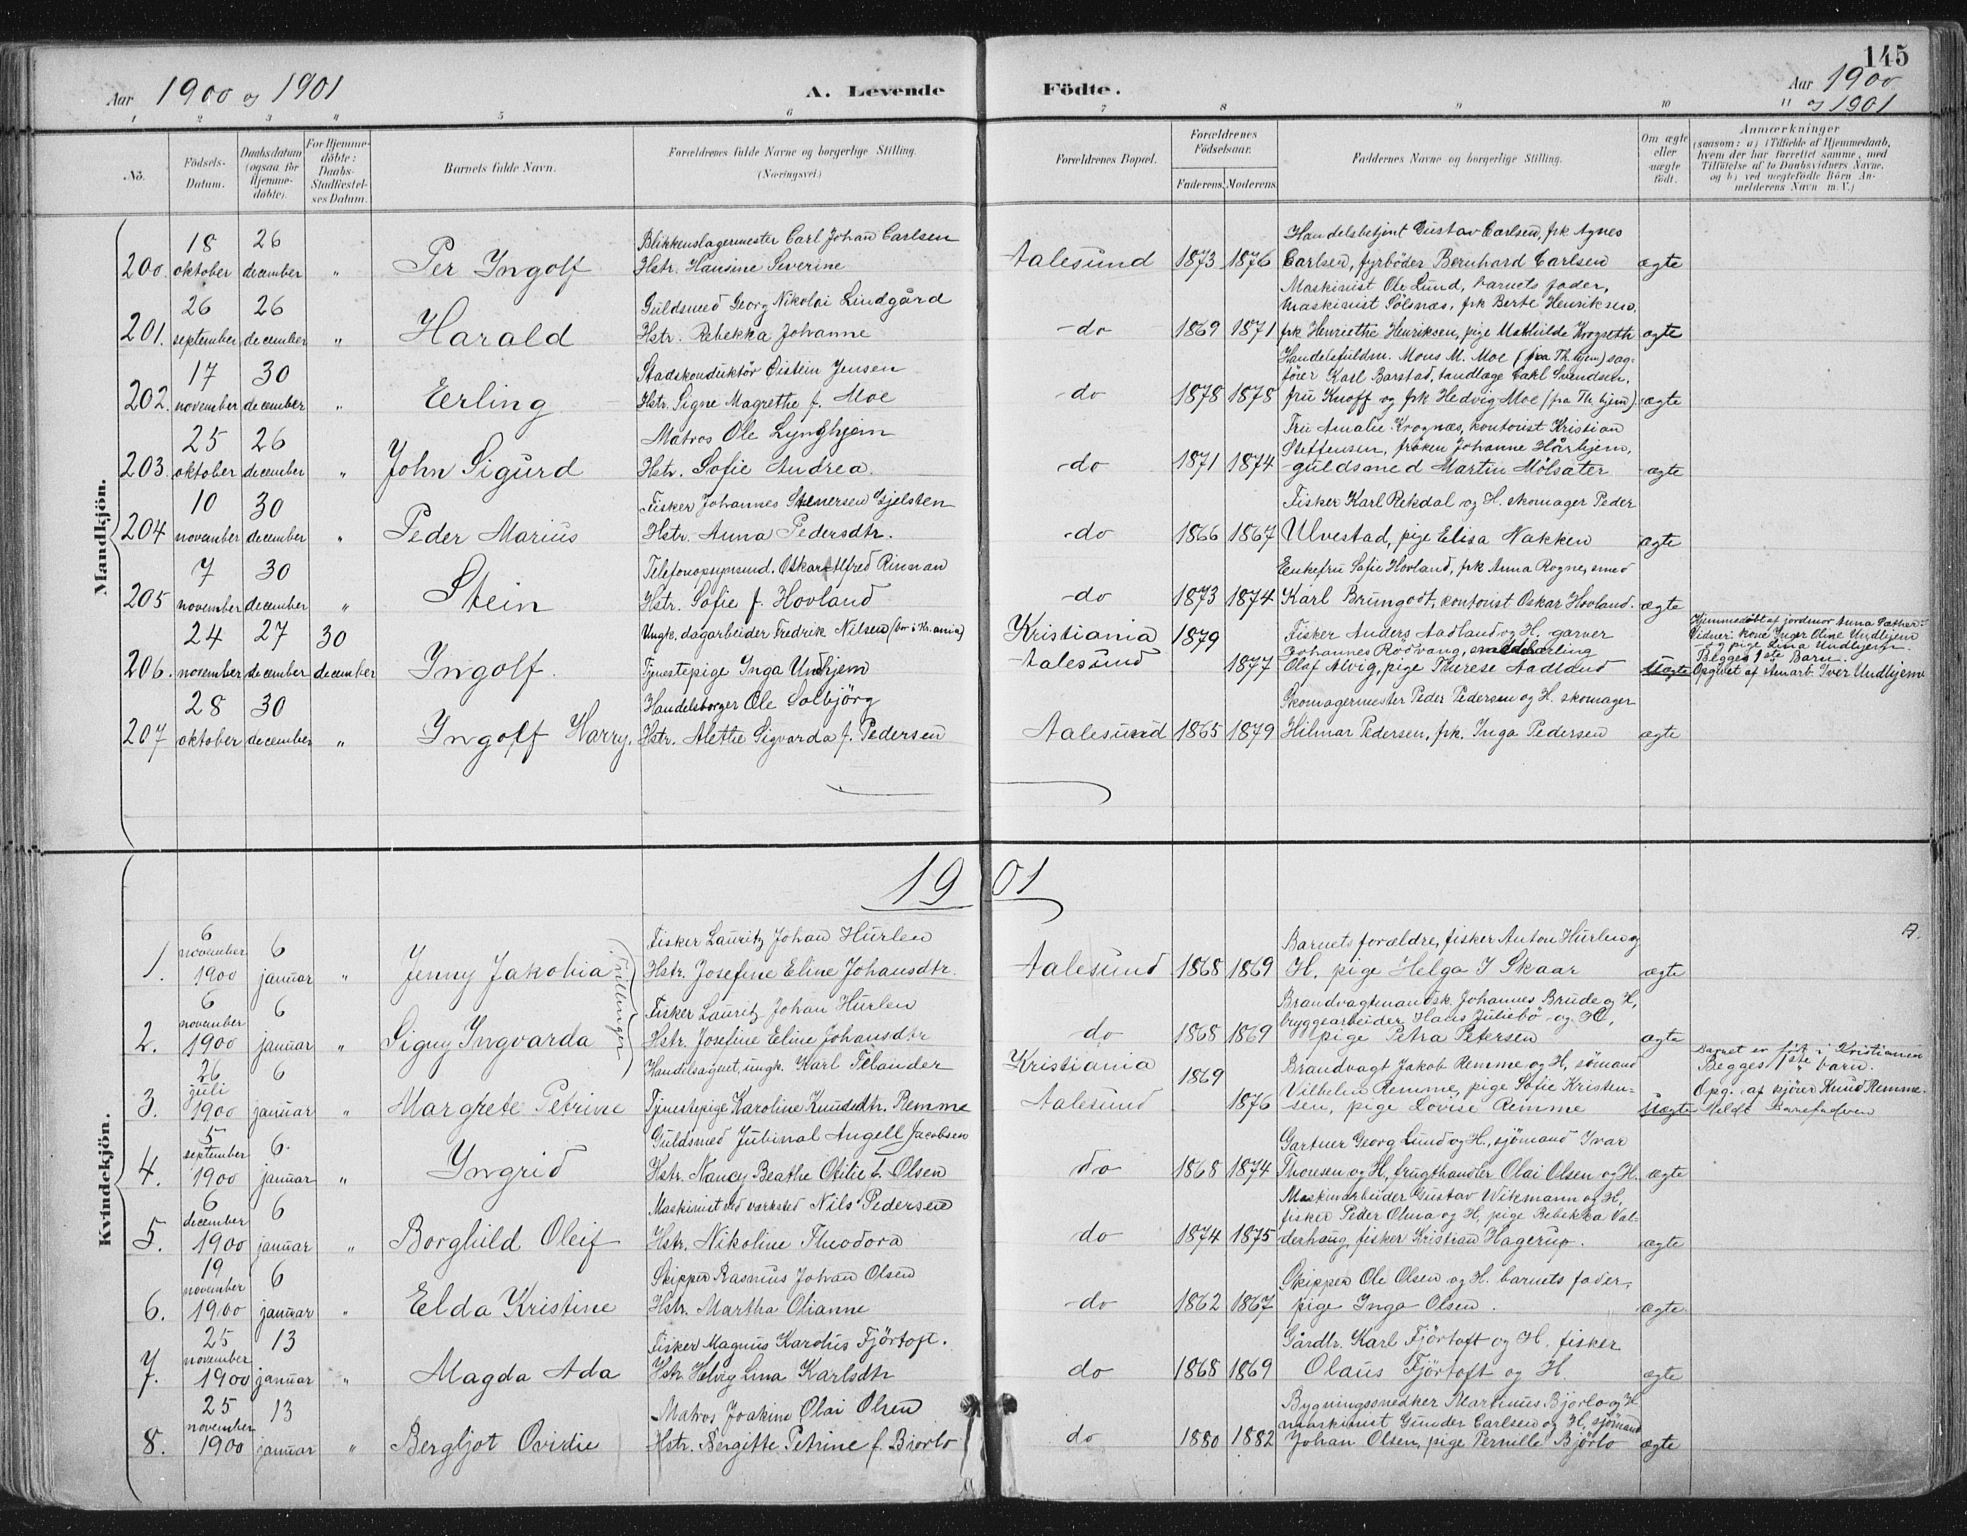 145
Aar 1900 og 1901
A. Levende Födte.
Aar 1900 og 1901
1 2 3 4 5 6 7 8 9 10 11
No.
Födsels-Datum.
Daabsdatum (ogsaa for Hjemmedöbte).
For Hjemmedöbte: Daabs-Stadfæstelses Datum.
Barnets fulde Navn.
Forældrenes fulde Navne og borgerlige Stilling. (Næringsvei.)
Forældrenes Bopæl.
Forældrenes Födselsaar.
Faderens. Moderens.
Faddernes Navne og borgerlige Stilling.
Om ægte eller uægte födt.
Anmærkninger
(saasom: a) i Tilfælde af Hjemmedaab, hvem der har forrettet samme, med Tilföielse af to Daabsvidners Navne. og b) ved uægtefödte Börn Anmelderens Navn m. V.)
Mandkjön.
200. 18 oktober 26 december " Per Ingolf
Blikkenslagermester Carl Johan Carlsen
Hstr. Hansine Severine
Aalesund 1873 1876
Handelsbetjent Gustav Carlsen, frk Agnes
Carlsen, fyrböder Bernhard Carlsen ægte
201. 26 september 26 december " Harald
Guldsmed Georg Nikolai Lindgård
Hstr. Rebekka Johanne
do 1869 1871
Maskinist Ole Lund, barnets fader,
maskinist Sölsnæs, frk Berte Henriksen,
frk Henriette Henriksen, pige Mathilde Krogseth ægte
202. 17 november 30 december " Erling
Stadskonduktör Öistein Jensen
Hstr. Signe Magrethe f. Moe
do 1878 1878
Handelsfuldm. Mons M. Moe (fra Th.hjem) sag-
förer Karl Barstad, tandlæge Carl Svendsen,
fru Knoff og frk Hedvig Moe (fra Th.hjem). ægte
203. 25 oktober 26 december " John Sigurd
Matros Ole Lynghjem
Hstr. Sofie Andrea.
do 1871 1874
Fru Amalie Krognæs, kontorist Kristian
Steffensen, fröken Johanne Hårhjem,
guldsmed Martin Mölsäter ægte
204 10 november 30 december " Peder Marius
Fisker Johannes Stenersen Gjelsten
Hstr. Anna Pedersdtr.
do 1866 1867
Fisker Karl Rekdal og H. skomager Peder
Ulvestad, pige Elisa Nakken ægte
205 7 november 30 december " Stein
Telefonopsynsmd. Oskar Alfred Rinnan
Hstr. Sofie f. Hovland
do 1873 1874
Enkefru Sofie Hovland, frk Anna Rogne, smed
Karl Brungodt, kontorist Oskar Hovland. ægte
206. 24 november 27 december 30 december Ingolf.
Ungk, dagarbeider Fredrik Nilsen (bor i Kr.ania)
Tjenestepige Inga Undhjem
Kristiania 1879
Aalesund 1877
Fisker Anders Aadland og H. garver
Johannes Rödvang, smedderling
Olaf Alvig, pige Therese Aadland Uægte
Hjemmedöbt af jordmor Anna Sæther.
Vidner: kone Inger Oline Undhjem
og pige Lina Undhjem.
Begges 1ste Barn.
Opgivet af Smarb. Iver Undhjem
207 28 oktober 30 december " Ingolf Harry.
Handelsborger Ole Solbjörg
Hstr. Alette Sigvarda f. Pedersen
Aalesund 1865 1879
Skomagermester Peder Pedersen og H. skomager
Hilmar Pedersen, frk. Inga Pedersen ægte
1901
Kvindekjön.
1. 6 november 1900 6 januar " Jenny Jakobia
Tvillinger
Fisker Lauritz Johan Hurlen
Hstr. Josefine Eline Johansdtr.
Aalesund 1868 1869
Barnets forældre, fisker Anton Hurlen og
H. pige Helga J Skaar ægte
2. 6 november 1900 6 januar " Signy Ingvarda
Fisker Lauritz Johan Hurlen
Hstr. Josefine Eline Johansdtr
do 1868 1869
Brandvagtmandsk. Johannes Brude og H,
bryggearbeider Hans Juliebö og H.,
pige Petra Petersen ægte
3. 26 juli 1900 6 januar " Margrete Petrine
Handelsagent, ungk. Karl Telander
Tjenestepige Karoline Knudsdtr. Remme
Kristiania 1869
Aalesund 1876
Brandvagt Jakob Remme og H, sömand
Vilhelm Remme, pige Sofie Kristen-
sen, pige Lovise Remme Uægte
Barnet er födt i Kristiania
Begges 1ste barn.
Opg. af kjörer Knud Remme.
Meldt Barnefaderen
4. 5 september 1900 6 januar " Ingrid
Guldsmed Jubinal Angell Jacobsen
Hstr. Nancy Beathe Otilie f. Olsen
do 1868 1874
Gartner Georg Lund og H., sjömand Ivar
Thonsen og H, frugthandler Olai Olsen og H. ægte
5. 6 december 1900 6 januar " Borghild Oleif
Maskinist ved værksted Nils Pedersen
Hstr. Nikoline Theodora
do 1874 1875
Maskinarbeider Gustav Wikmann og H,
fisker Peder Olma og H, pige Rebekka Val-
derhaug, fisker Kristian Hagerup. ægte
6. 19 november 1900 6 januar " Elda Kristine
Skipper Rasmus Johan Olsen
Hstr. Martha Olianne
do 1862 1867
Skipper Ole Olsen og H. barnets fader,
pige Inga Olsen. ægte
7. 25 november 1900 13 januar " Magda Ada
Fisker Magnus Karolus Fjörtoft.
Hstr. Helvig Lina Karlsdtr
do 1868 1869
Gårdbr. Karl Fjörtoft og H. fisker
Olaus Fjörtoft og H. ægte
8. 25 november 1900 13 januar " Bergljot Ovidie
Matros Joakim Olai Olsen
Hstr. Bergitte Petrine f. Biorlo
do 1880 1882
Bygningssnedker Martinus Bjorlo og H
maskinist Gunder Carlsen og H, sjömand
Johan Olsen, pige Pernille Bjørlo ægte